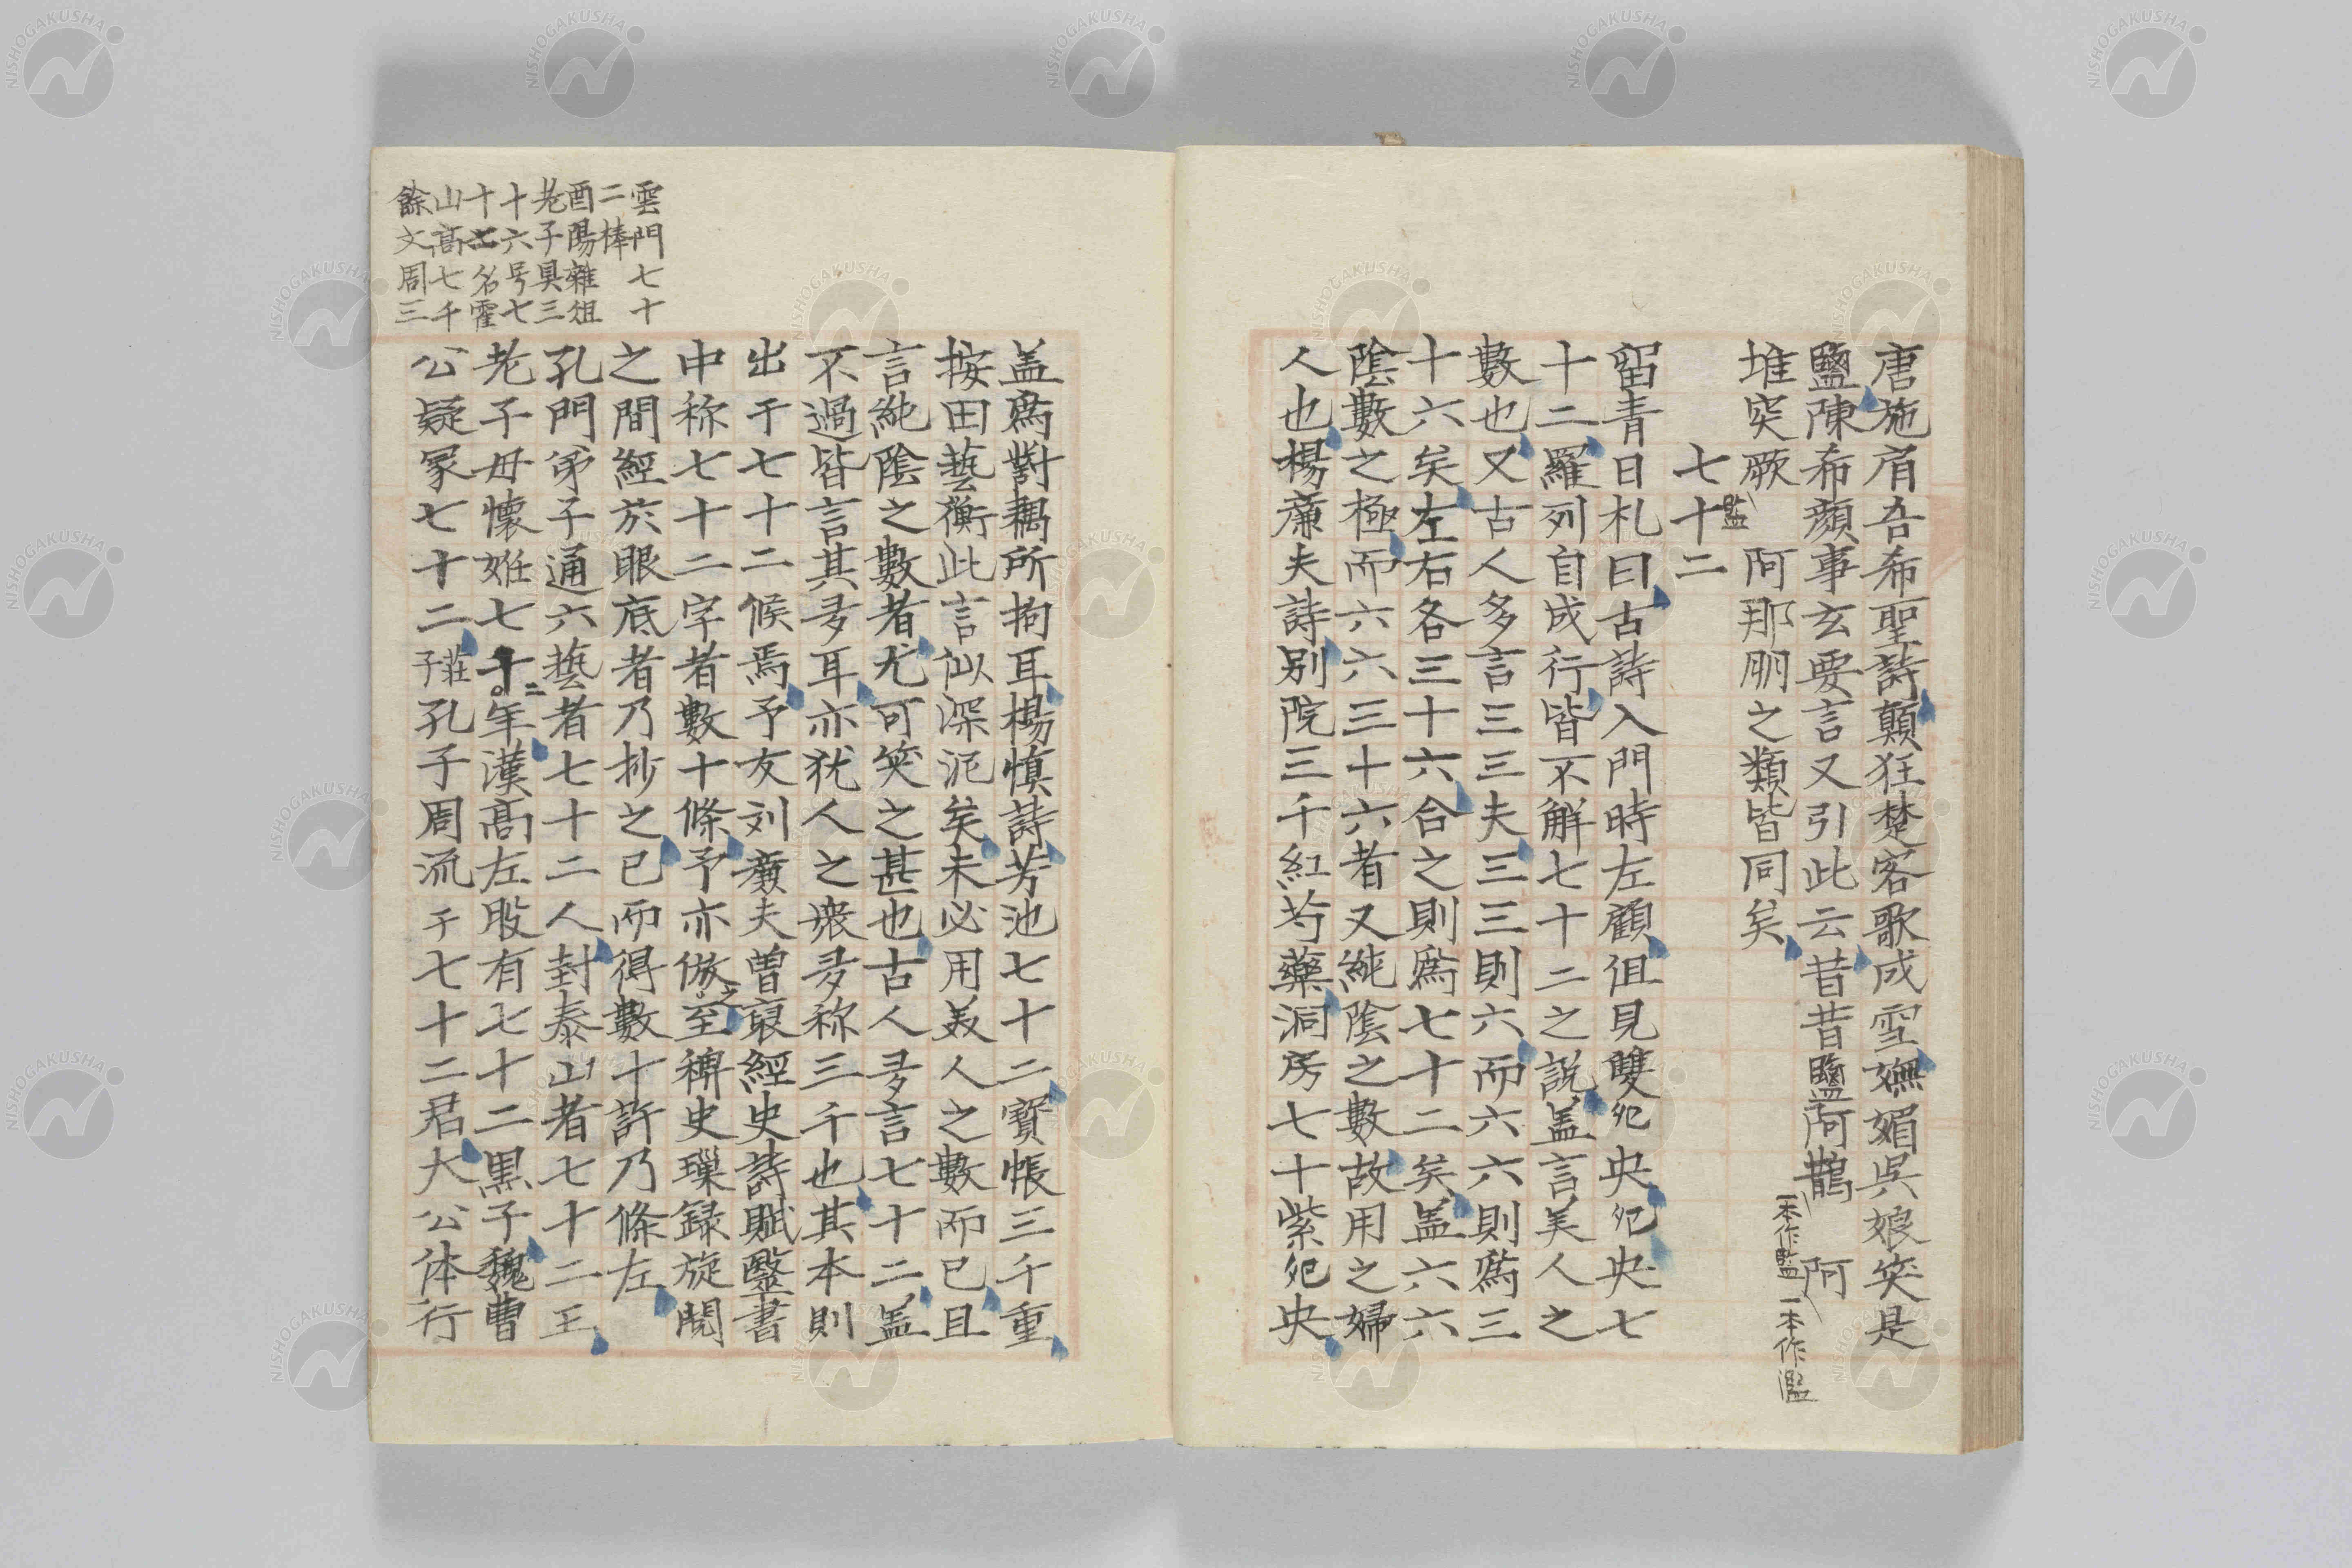 唐施肩吾希聖詩顛狂楚客歌成雪嫵媚吳娘笑是
鹽陳希顏事玄要言又引此云昔昔鹽阿鵲鹽一本作監阿一本作濫
堆突厥鹽阿那朋之類皆同矣
七十二
留青日札曰古詩入門時左顧但見雙鴛央鴛央七
十二羅列自成行皆不解七十二之說盖言美人之
數也又古人多言三三夫三三則六而六六則爲三
十六矣左右各三十六合之則爲七十二矣盖六六
陰數之極而六六三十六者又純陰之數故用之婦
人也楊廉夫詩別院三千紅芍藥洞房七十紫鴛央
盖爲對耦所拘耳楊慎詩芳池七十二寳帳三千重
按田藝衡此言似深泥矣未必用美人之數而已且
言純陰之數者尤可笑之甚也古人多言七十二盖
不過皆言其多耳亦犹人之衆多称三千也其本則
出于七十二候焉予友刘廣夫曽裒經史詩賦毉書
中称七十二字者數十條予亦倣之至稗史璅録旋閱
之間經於眼底者乃抄之已而得數十許乃條左
孔門弟子通六藝者七十二人封泰山者七十二王
老子母懷姙七十二年漢高左股有七十二黒子魏曹
公疑冢七十二莊子孔子周流于七十二君大公体行
雲門七十
二棒
酉陽雜俎
老子具三
十六号七
十二名霍
山高七千
餘丈周三